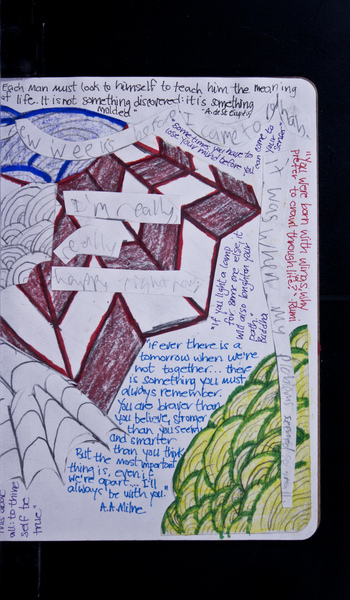 Each man must look to himself to teach him the meaning
of life. It is not something discovered: it is something
molded"
"A. de st Exupéry
few weeks before I came to
"Sometimes you have to
lose your mind before
you can come to
your
senses"
"You were born with wings, why
prefer to crawl through life?" - Rumi
it was when my problem
I'm really,
really
happy right now
"If you light a lamp
for some one else, it
will also brighten your
path."
Buddha
"if ever there is a
tomorrow when we're
not together... there
is something you must
always remember.
You are braver than
you believe, stronger
than you seem
and smarter
than you think
But the most important
thing is, even if
we're apart... I'll
always be with you."
A.A. Milne
This above
all: to thine
self be
true"